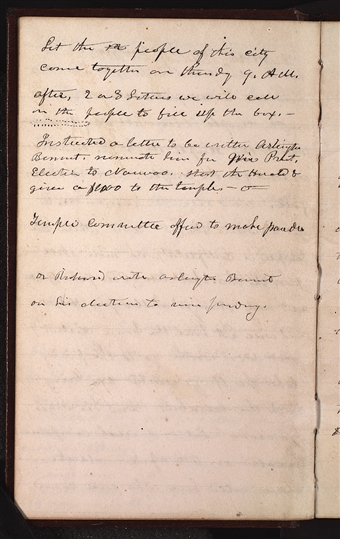 Let the people of this city
come together on thursdy 9. AM.
after, 2 or 3 letters we will call
on the people to fill up the box, –
Instructed a letter to be written Arlington
Bennet. nominate him for Vice Prest.
Election to Nauvoo. start the Herald &
give a $1000 to the temple –
Temple Committee offered to make
or Richard write Arlington Bennet
on his election to